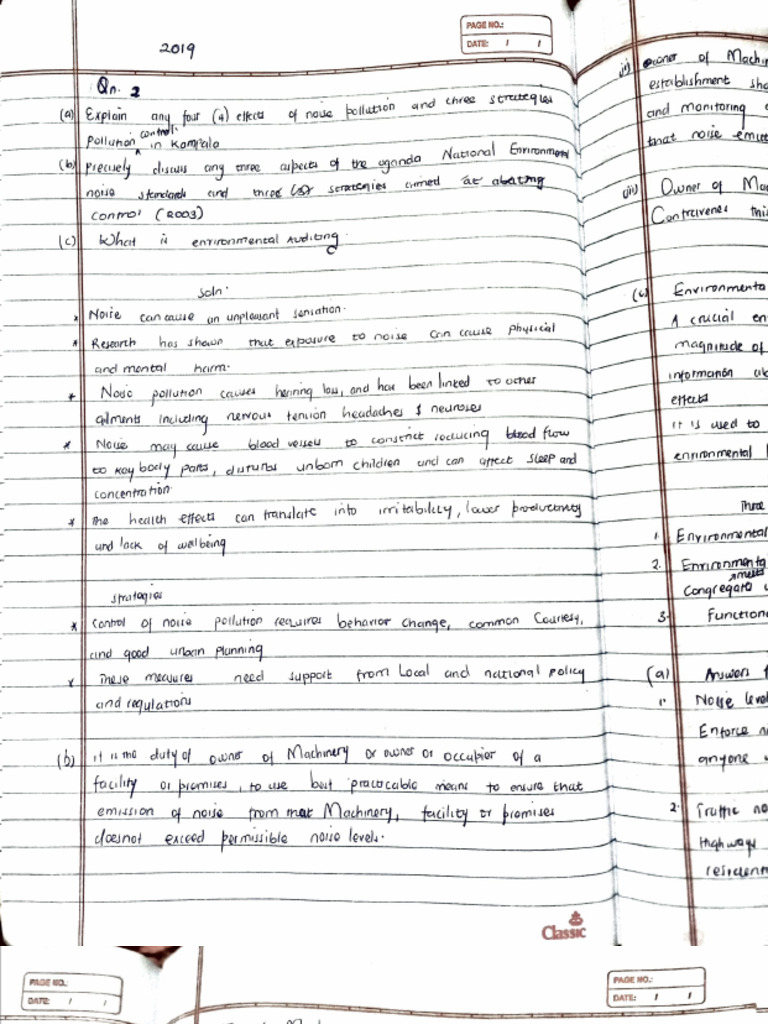 2019
PAGE NO.:
DATE: / /
Qn. 2
(a) Explain any four (4) effects of noise pollution and three strategies
control
Pollution ^ in Kampala
(b) Precisely discuss any three aspects of the uganda National Environment
noise standards and three (3) strategies aimed at abating
control (2003)
(c) What is environmental Auditing
Soln.
* Noise can cause an unpleasant sensation.
* Research has shown that exposure to noise can cause physical
and mental harm.
* Noise pollution causes hearing loss, and has been linked to other
ailments including nervous tension headaches & neuroses
* Noise may cause blood vessels to constrict reducing blood flow
to key body parts, disturbs unborn children and can affect sleep and
concentration
* The health effects can translate into irritability, lower productivity
and lack of wellbeing
Strategies
* Control of noise pollution requires behavior change, common Courtesy,
and good urban planning
* These measures need support from Local and national policy
and regulations
(b) it is the duty of owner of Machinery or owner or occupier of a
facility or promises, to use best practicable means to ensure that
emission of noise from that Machinery, facility or promises
doesnot exceed permissible noise levels.
Classic
ii) owner of
establishment
and monitoring
that noise
(iii) Owner of
Contravenes
(c)
A crucial
magnitude of
information
effects
it is used to
environmental
Three
1. Environmental
2.
meets
Congregate
3.
(a) Answers
1. Noise
Enforce
anyone
2. Traffic
Highways
PAGE NO.:
DATE: / /
PAGE NO.:
DATE: / /